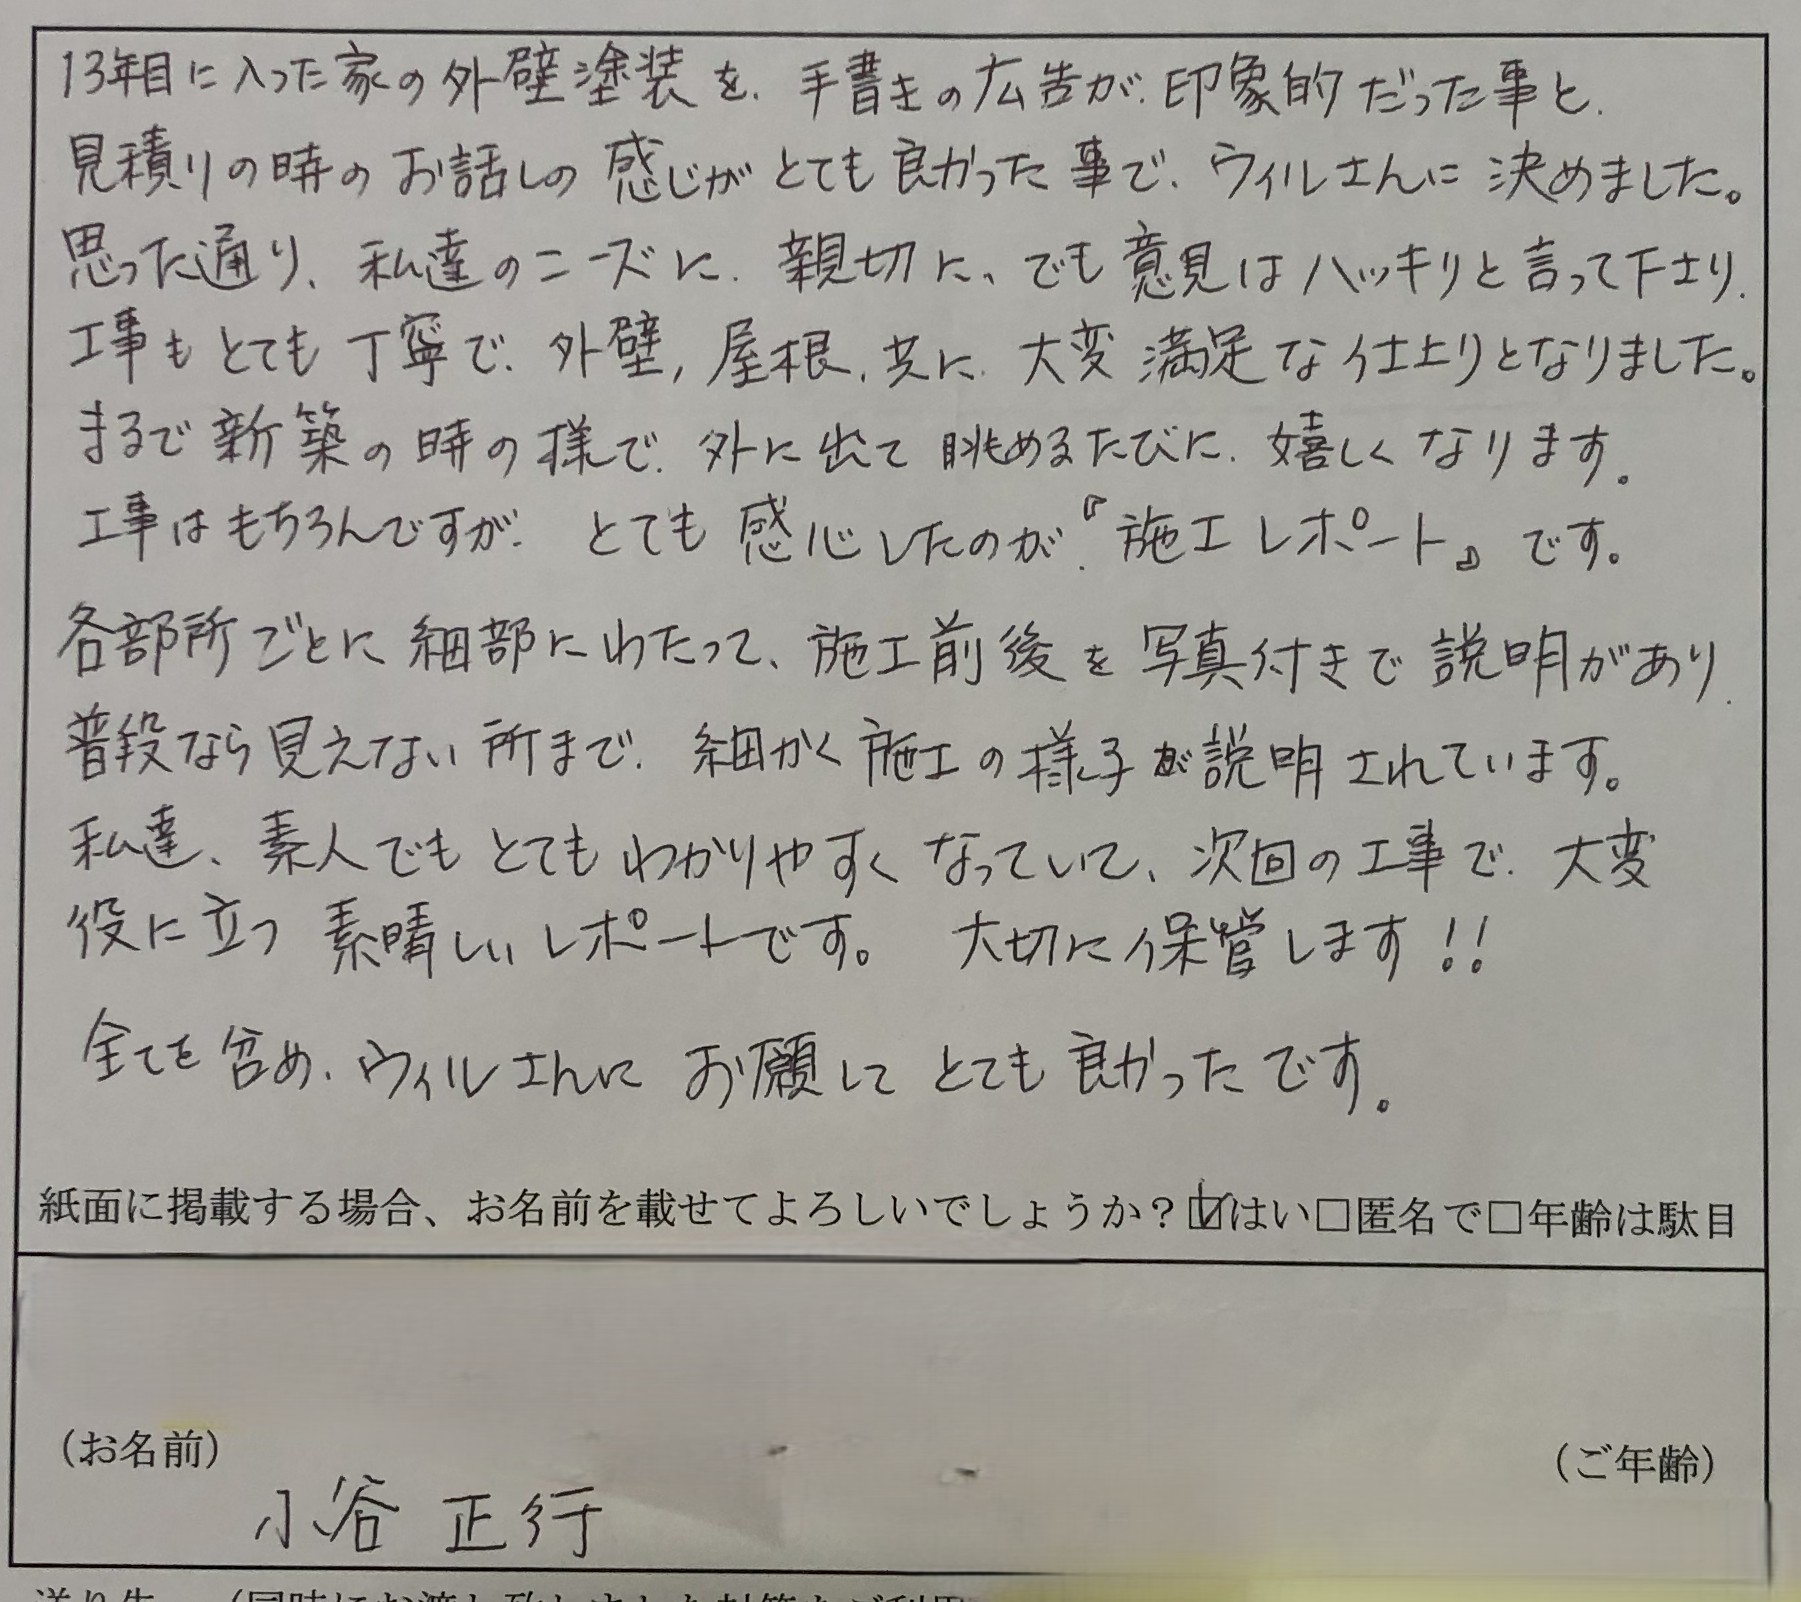 13年目に入った家の外壁塗装を、手書きの広告が、印象的だった事と、
見積りの時のお話しの感じがとても良かった事で、ウィルさんに決めました。
思った通り、私達のニーズに、親切に、でも意見はハッキリと言って下さり、
工事もとても丁寧で、外壁,屋根,共に、大変満足な仕上りとなりました。
まるで新築の時の様で、外に出て眺めるたびに、嬉しくなります。
工事はもちろんですが、とても感心したのが、『施工レポート』です。
各部所ごとに細部にわたって、施工前後を写真付きで説明があり、
普段なら見えない所まで、細かく施工の様子が説明されています。
私達、素人でもとてもわかりやすくなっていて、次回の工事で、大変
役に立つ素晴しいレポートです。大切に保管します!!
全てを含め、ウィルさんにお願してとても良かったです。
紙面に掲載する場合、お名前を載せてよろしいでしょうか？☑はい□匿名で□年齢は駄目
（お名前）
（ご年齢）
小谷 正行